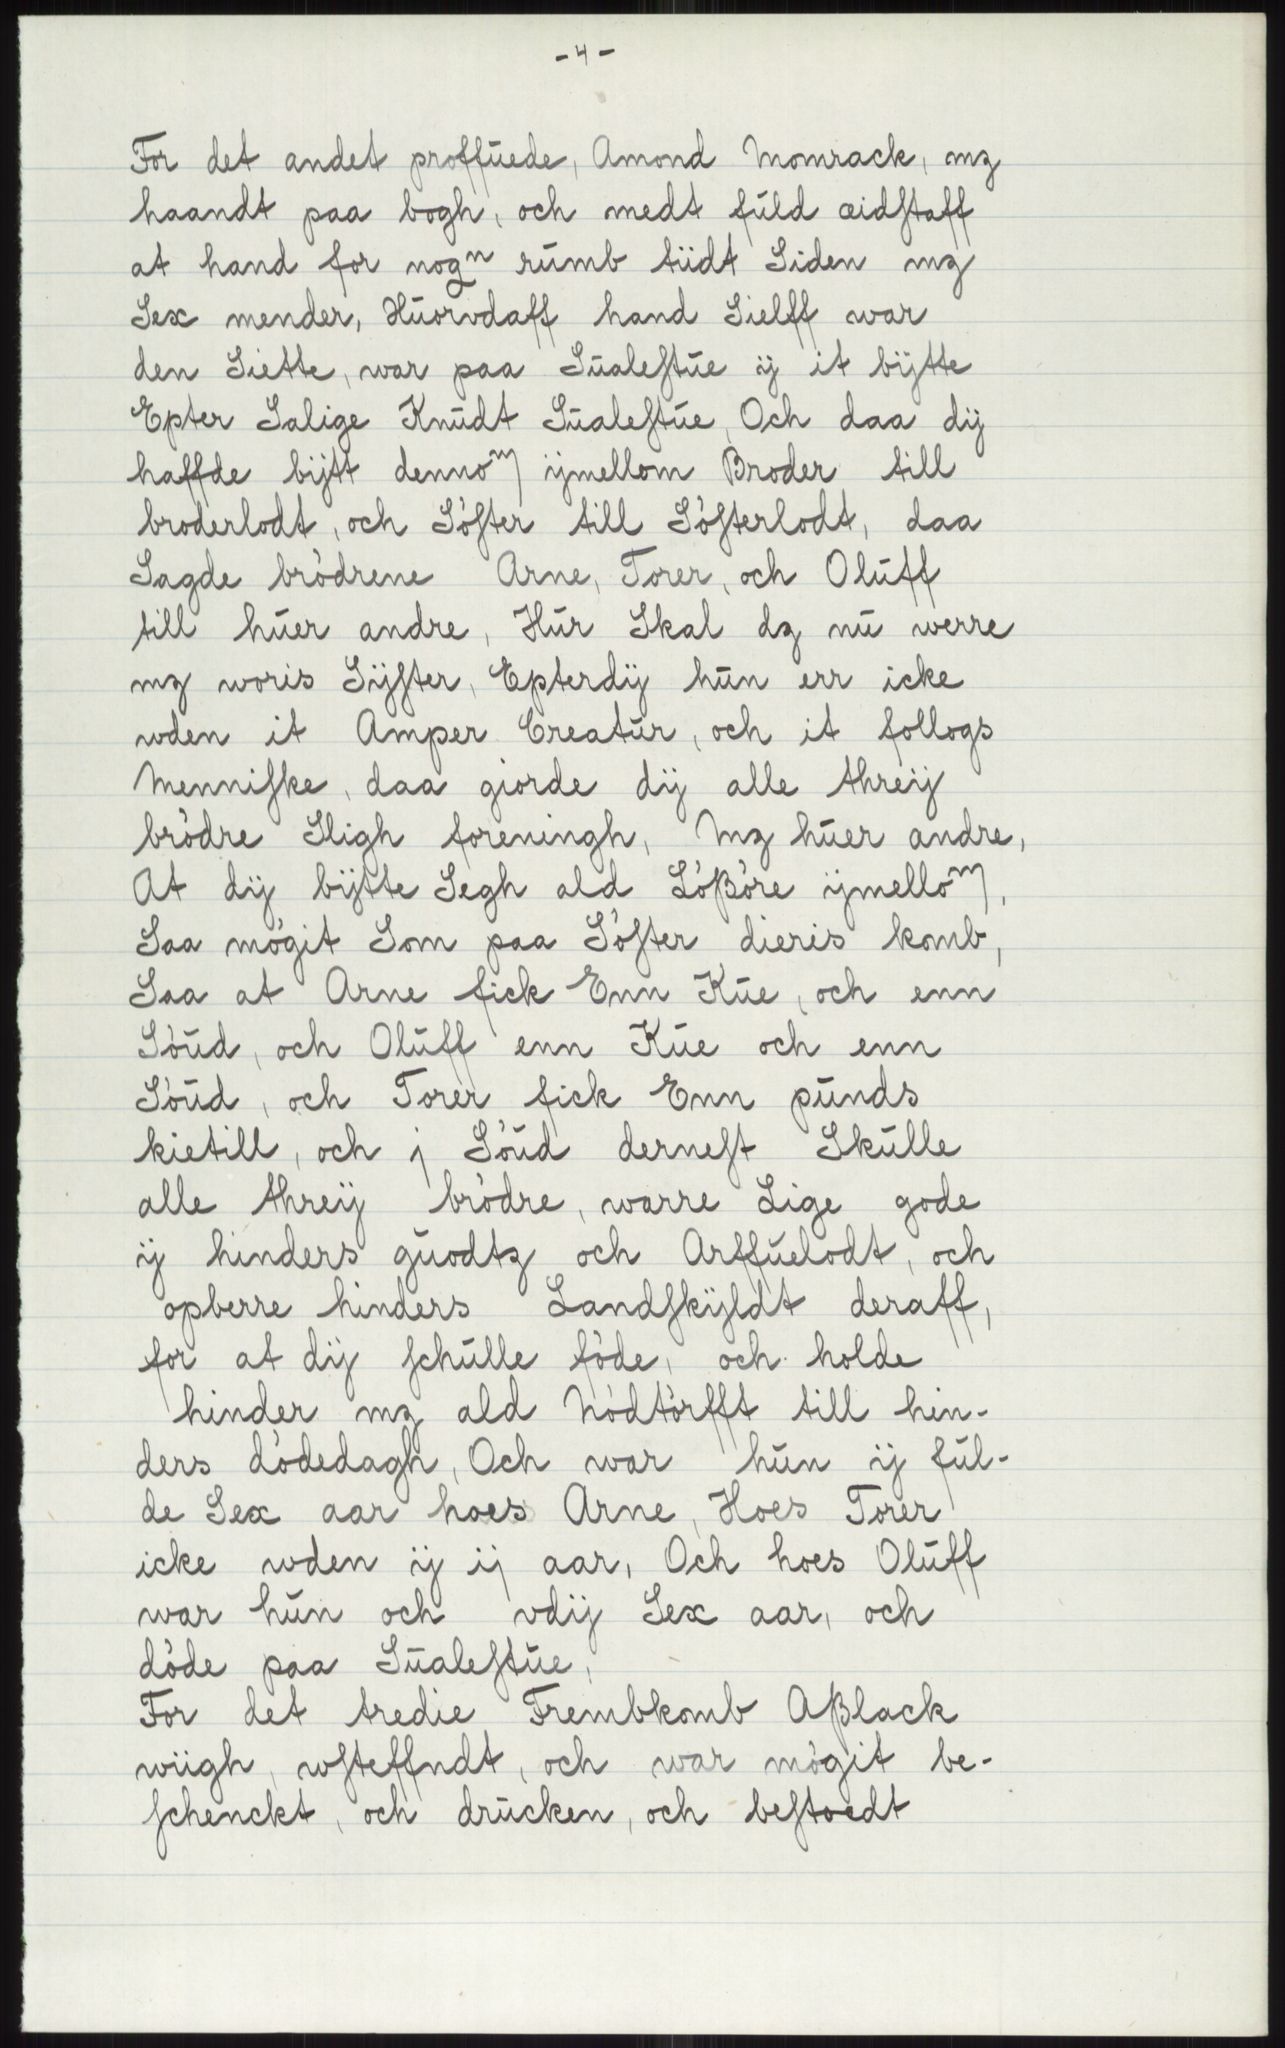 - 4 -
For det andet proffuede, Amond Momrack, mz
haandt paa bogh, och medt fuld æidstaff
at hand for nogn rumb tiidt Siden mz
Sex mender, Huorvdaff hand Sielff war
den Siette, war paa Sualestue ij it bijtte
Epter Salige Knudt Sualestue, Och daa dij
haffde bijtt dennom ijmellom Broder till
broderlodt, och Söster till Sösterlodt, daa
Sagde brödrene Arne, Torer, och Oluff
till huer andre, Hur Skal dz nu werre
mz woris Sijster, Epterdij hun err icke
wden it Amper Creatur, och it follogs
Menniske, daa giorde dij alle threij
brödre Sligh foreningh, Mz huer andre,
At dij bijtte Segh ald Lößöre ijmellom,
Saa mögit Som paa Söster dieris komb,
Saa at Arne fick Enn Kue, och enn
Söud, och Oluff enn Kue och enn
Söud, och Torer fick Enn punds
kietill, och j Söud dernest Skulle
alle threij brödre, warre Lige gode
ij hinders guodtz och Arffuelodt, och
opberre hinders Landskijldt deraff,
for at dij schulle föde, och holde
hinder mz ald Nödtörfft till hin-
ders dödedagh, Och war hun ij ful-
de Sex aar hoes Arne, Hoes Torer
icke wden ij ij aar, Och hoes Oluff
war hun och vdij Sex aar, och
döde paa Sualestue,
For det tredie Frembkomb Aßlack
wiigh, wsteffndt, och war mögit be-
schenckt, och drucken, och bestoedt